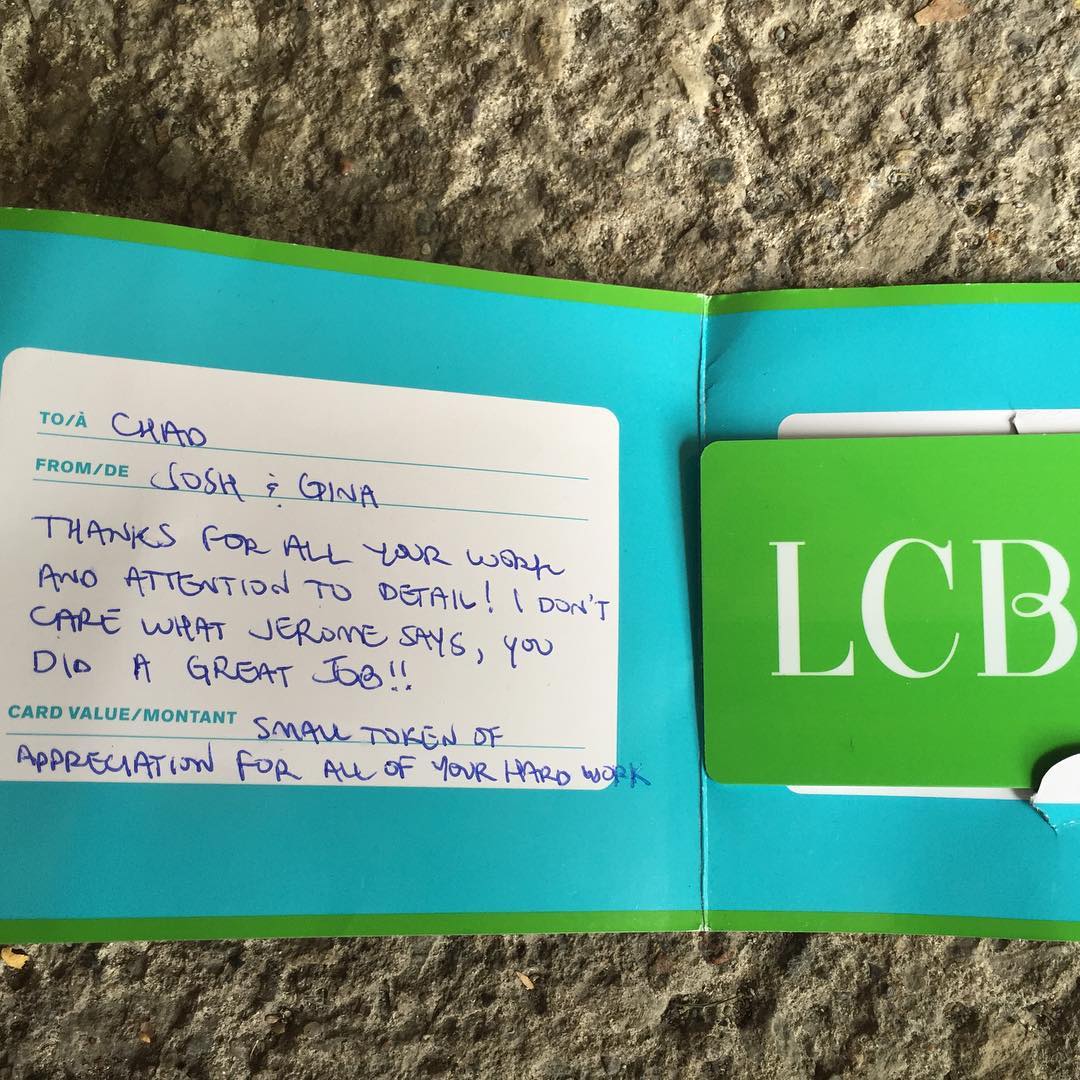 TO/À CHAD
FROM/DE JOSH & GINA
THANKS FOR ALL YOUR WORK
AND ATTENTION TO DETAIL! I DON'T
CARE WHAT JEROME SAYS, YOU
DID A GREAT JOB!!
CARD VALUE/MONTANT SMALL TOKEN OF
APPRECIATION FOR ALL OF YOUR HARD WORK
LCB